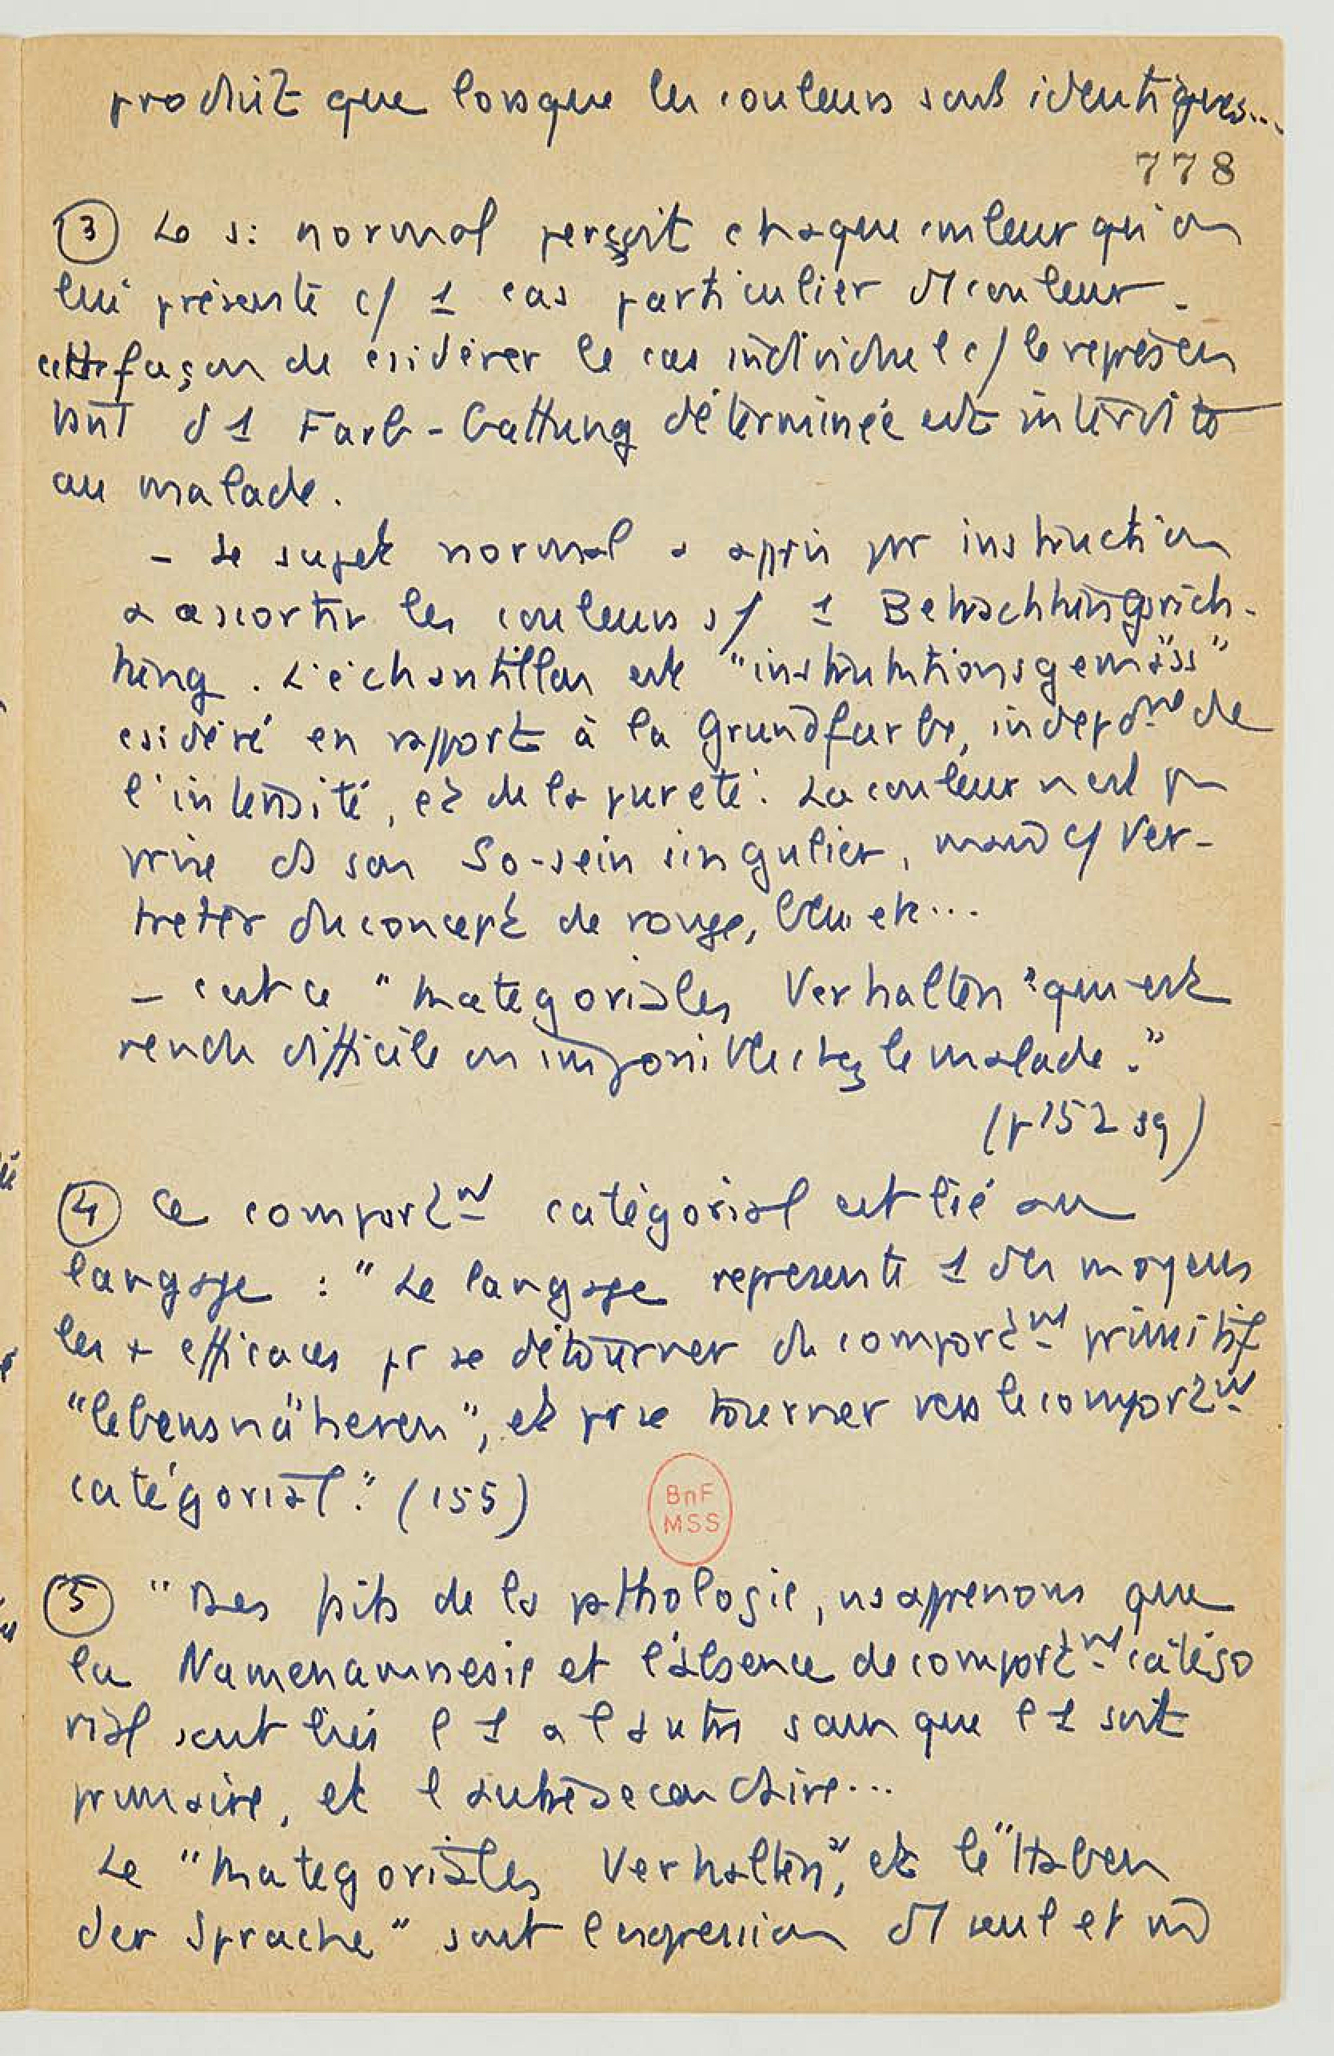 produit que lorsque les couleurs sont identiques...
778
③ Le s: normal perçoit chaque couleur qu'on
lui présente c/ 1 cas particulier d1 couleur.
cette façon de csidérer le cas individuel c/ le représen
tant d1 Farb-Gattung déterminée est interdite
au malade.
- Le sujet normal a appris pr instruction
a assortir les couleurs s/ 1 Betrachtungsrich-
tung. L'échantillon est "instruktionsgemäss"
csidéré en rapport à la Grundfarbe, indépdnt de
l'intensité, et de la pureté. La couleur n'est pas
prise ds son So-sein singulier, mais c/ Ver-
treter du concept de rouge, bleu etc...
- c'est ce "kategoriales Verhalten" qui est
rendu difficile ou impossible chez le malade."
(p 152 sq)
④ Ce comportnt catégorial est lié au
langage : "Le langage represente 1 des moyens
les + efficaces pr se détourner du comportnt primitif
"lebensnäheren", et pr se tourner vers le comportnt
catégorial." (155)
BnF
MSS
⑤ "Des faits de la pathologie, ns apprenons que
la Namenamnesie et l'absence de comportnt catégo
rial sont liés l'1 a l'autre sans que l'1 soit
primaire, et l'autre secondaire...
Le "kategoriales Verhalten", et le "Haben
der Sprache" sont l'expression d'1 seul et m̄